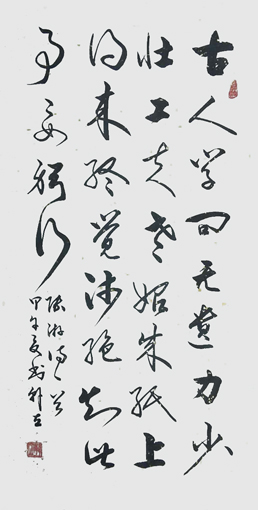 古人学问无遗力少
壮工夫老始成纸上
得来终觉浅绝知此
事要躬行
陆游诗
甲午夏书